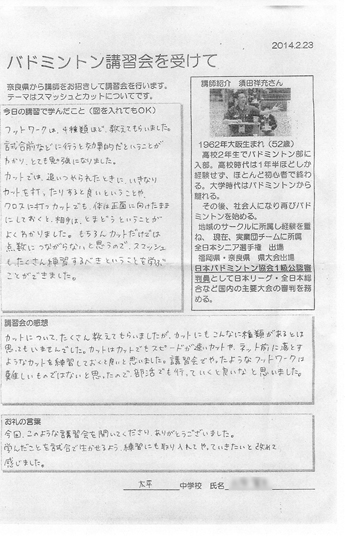 2014.2.23
バドミントン講習会を受けて
奈良県から講師をお招きして講習会を行います。
テーマはスマッシュとカットについてです。
今日の講習で学んだこと（図を入れてもOK）
フットワークは、4種類ほど教えてもらいました。
試合前などに行うと効果的だということが
わかり、とても勉強になりました。
カットでは、追いつめられたときに、いきなり
カットを打ったりすると良いということや、
クロスに打つカットでも、体は正面に向けたまま
にしておくと、相手は、とまどうということが
よくわかりました。もちろんカットだけでは
点数につながらないと思うので、スマッシュ
もたくさん練習するべきということを学ぶ
ことができました。
講師紹介　須田祥充さん
1962年大阪生まれ（52歳）
高校2年生でバドミントン部に
入部。高校時代は1年半ほどしか
経験せず、ほとんど初心者で終わ
る。大学時代はバドミントンから
離れる。
その後、社会人になり再びバド
ミントンを始める。
地域のサークルに所属し経験を重
ね、現在、実業団チームに所属
全日本シニア選手権　出場
福岡県・奈良県　県大会出場
日本バドミントン協会1級公認審
判員として日本リーグ・全日本総
合など国内の主要大会の審判を務
める。
講習会の感想
カットについて、たくさん教えてもらいましたが、カットにもこんなに種類があるとは
思ってもいませんでした。カットはカットでもスピードが速いカットや、ネット前に落とす
ようなカットを練習しておくと良いと思いました。講習会でやったようなフットワークは
難しいものではないと思ったので、部活でも行っていくと良いなと思いました。
お礼の言葉
今回、このような講習会を開いてくださり、ありがとうございました。
学んだことを試合で生かせるよう、練習にも取り入れてやっていきたいと改めて
感じました。
太平　中学校　氏名